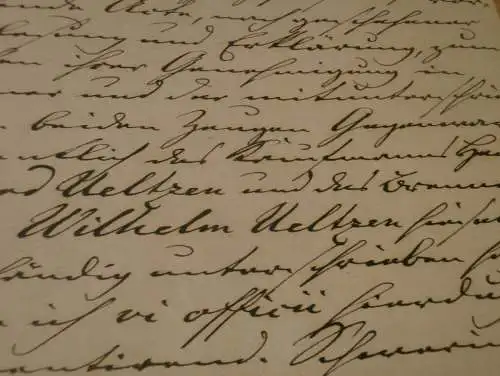 ende Acte, nach geschehener
lesung und Erklärung, zum
en ihrer Genehmigung in
ner und der mitunterschrie
beiden Zeugen Gegenwar
entlich des Kaufmanns He
Ueltzen und des Brenn
Wilhelm Ueltzen hiesel
händig unterschrieben
ich vi officii hierdu
entirend. Schwerin